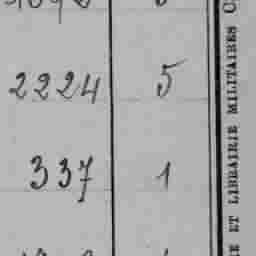 2224 5
337 1
E ET LIBRAIRIE MILITAIRES